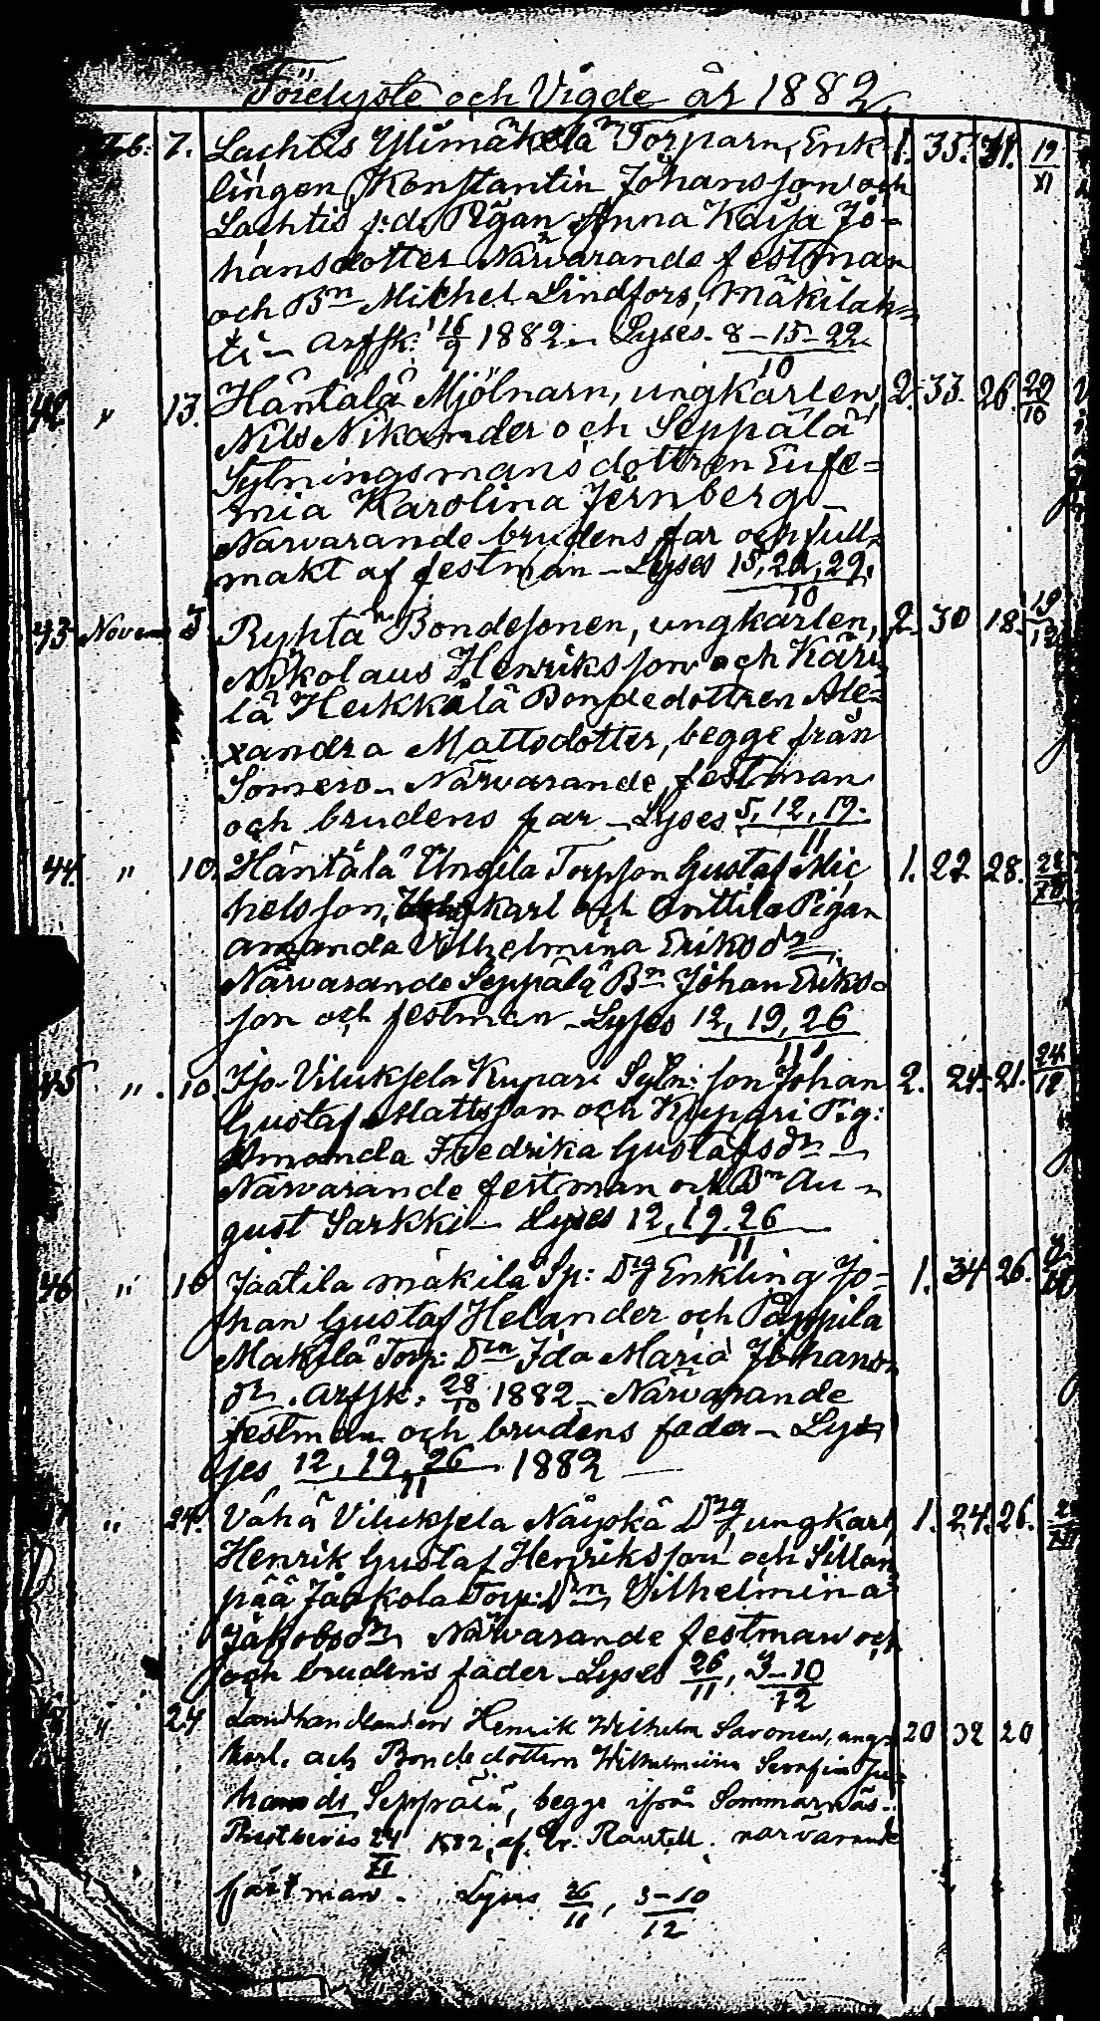 Förelyste och Vigde år 1882
7. Lachtis Ylimäkelä Torparn, Enk- 1. 35. 31. 19/XI
lingen Konstantin Johansson och
Lachtis Pigan Anna Kaisa Jo-
hansdotter Närvarande festman
och Bn Michel Lindfors, Mäkilah-
ti – Arfsk: 16/9 1882 – Lyses. 8–15–22/10
42 " 13. Häntälä Mjölnarn, ungkarlen, 2. 33. 26. 29/10
Nils Nikander och Seppälä
Sytningsmansdottren Eufe=
mia Karolina Jernberg –
Närvarande brudens far och full-
makt af festman – Lyses 15, 22, 29/10
43 Novem 3 Ryhtä Bondesonen, ungkarlen, 2. 30 18. 19/12
Nikolaus Henriksson och Käri-
lä Heikkilä Bondedottren Ale-
xandra Mattsdotter, begge från
Somero – Närvarande festman
och brudens far – Lyses 5, 12, 19/11
44. " 10. Häntälä Ungila Torpson Gustaf Mic 1. 22 28.
helsson, karl och Anttila Pigan
Amanda Vilhelmina Eriksdr
Närvarande Seppälä Bn Johan Eriks-
son och festman – Lyses 12, 19, 26/11
45 " 10. Iso-Viluksela Kupari Sytn: son Johan 2. 24. 21. 24/12
Gustaf Mattsson och Kupari Pig:
Amanda Fredrika Gustafsdr –
Närvarande festman och Bn Au-
gust Sarkki – Lyses 12, 19, 26/11
46 " 10 Jaatila mäkilä Sp: Dg Enkling Jo- 1. 34 26.
han Gustaf Helander och Pappila
Mäkilä Torp: Drn Ida Maria Johans-
dr. Arfsk: 28/10 1882 – Närvarande
festman och brudens fader – Ly-
ses 12, 19, 26/11 1882 –
" 24. Vähä Viluksela Näyskä Drg ungkarl 1. 24. 26.
Henrik Gustaf Henriksson och Sillan
pää Jaakola Torp: Drn Vilhelmina
Jakobsdr Närvarande festman och
och brudens fader – Lyses 26/11, 3–10/12
" 24 Landhandlanden Henrik Wilhelm Savonen, ung- 20 32 20
karl, och Bondedottern Wilhelmina Serafia Ju-
hansdr Seppälä, begge ifrån Sommarnäs.
24/XI 1882, af närvarande
fästman. Lyses 26/11, 3–10/12